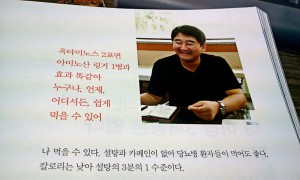 옥타미녹스 2포면
아미노산 링거 1병과
효과 똑같아
누구나, 언제,
어디서든, 쉽게
먹을 수 있어
나 먹을 수 있다. 설탕과 카페인이 없어 당뇨병 환자들이 먹어도 좋다.
칼로리는 낮아 설탕의 3분의 1 수준이다.